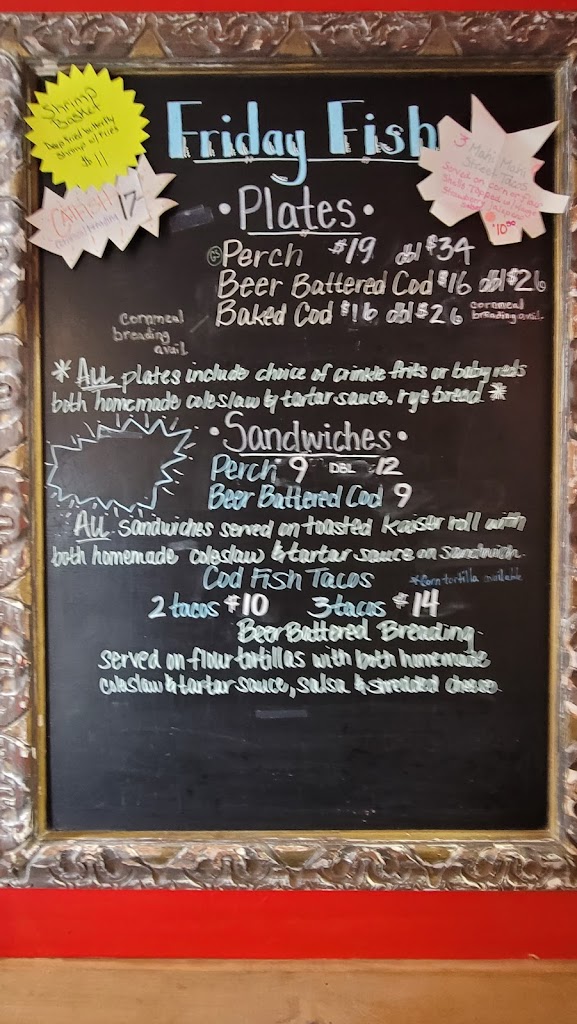 Shrimp
Basket
Deep fried butterfly
Shrimp w/ fries
$11
CATFISH 17-
cornmeal breading
Friday Fish
3 Mahi Mahi
Street Tacos
Served on corn or flour
Shells, Topped w/
Strawberry Jalapeno
$10.00
• Plates •
GS Perch $19 dbl $34
Beer Battered Cod $16 dbl $26
Baked Cod $16 dbl $26
cornmeal
breading avail.
Cornmeal
breading
avail
* ALL plates include choice of crinkle fries or baby reds
both homemade coleslaw & tartar sauce, rye bread *
• Sandwiches •
Perch 9 DBL 12
Beer Battered Cod 9
ALL sandwiches served on toasted kaiser roll with
both homemade coleslaw & tartar sauce on sandwich.
Cod Fish Tacos *Corn tortilla available
2 tacos $10 3 tacos $14
Beer Battered Breading
served on flour tortillas with both homemade
coleslaw & tartar sauce, salsa & shredded cheese